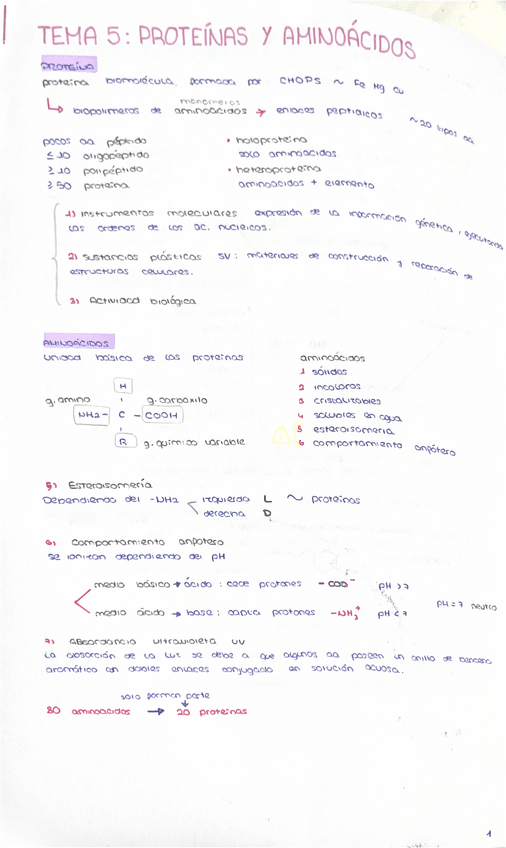 TEMA 5: PROTEÍNAS Y AMINOÁCIDOS
PROTEÍNA
proteína biomolécula formada por CHOPS ~ Fe Mg Cu
monómeros
↳ biopolímeros de aminoácidos → enlaces peptídicos ~20 tipos aa
pocos aa péptido
≤ 10 oligopéptido
≥ 10 polipéptido
≥ 50 proteína
• holoproteína
solo aminoácidos
• heteroproteína
aminoácidos + elemento
1) Instrumentos moleculares expresión de la información genética, ejecutoras
las ordenes de los ac. nucleicos.
2) Sustancias plásticas SV: materiales de construcción y reparación de
estructuras celulares.
3) Actividad biológica
AMINOÁCIDOS
Unidad básica de las proteínas
H
g. amino g. carboxilo
NH2 - C - COOH
R g. químico variable
aminoácidos
1 sólidos
2 incoloros
3 cristalizables
4 solubles en agua
5 esteroisomería
6 comportamiento anpótero
5) Esteroisomería
Dependiendo del -NH2 izquierda L ~ proteínas
derecha D
6) Comportamiento anpotero
se ionizan dependiendo del pH
medio básico → ácido : cede protones - COO⁻ pH > 7
medio ácido → base : capta protones - NH₃⁺ pH < 7
pH = 7 neutro
7) Absordancia ultravioleta UV
La absorción de la luz se debe a que algunos aa poseen un anillo de benceno
aromático con dobles enlaces conjugado en solución acuosa.
solo forman parte
80 aminoácidos → 20 proteínas
1